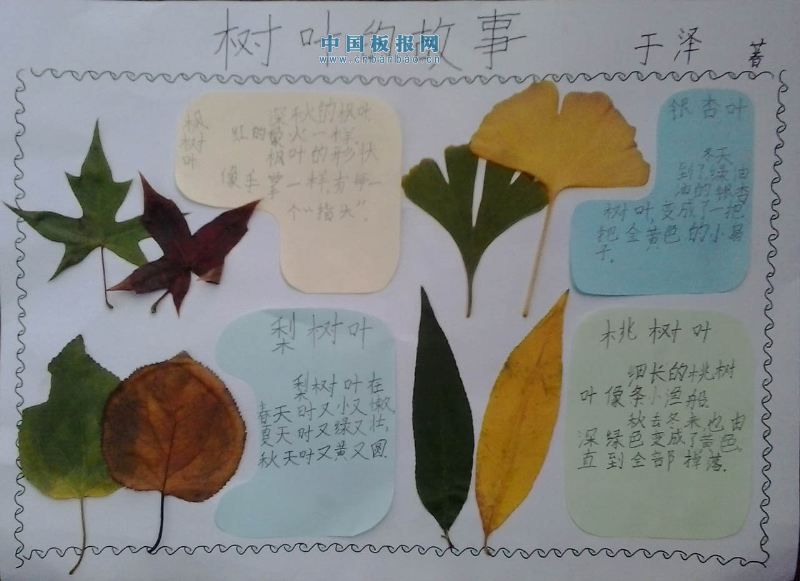 树叶的故事
中国板报网
www.cnbanbao.cn
于泽 著
枫树叶
深秋的枫叶
红的像火一样
枫叶的形状
像手掌一样,有
个“指头”.
银杏叶
冬天
到了,绿油
油的银杏
树叶,变成了一把
把金黄色的小扇
子.
梨树叶
梨树叶在
春天时又小又嫩,
夏天时又绿又壮,
秋天时又黄又圆.
桃树叶
细长的桃树
叶像条小渔船
秋去冬来也由
深绿色变成了黄色,
直到全部掉落.